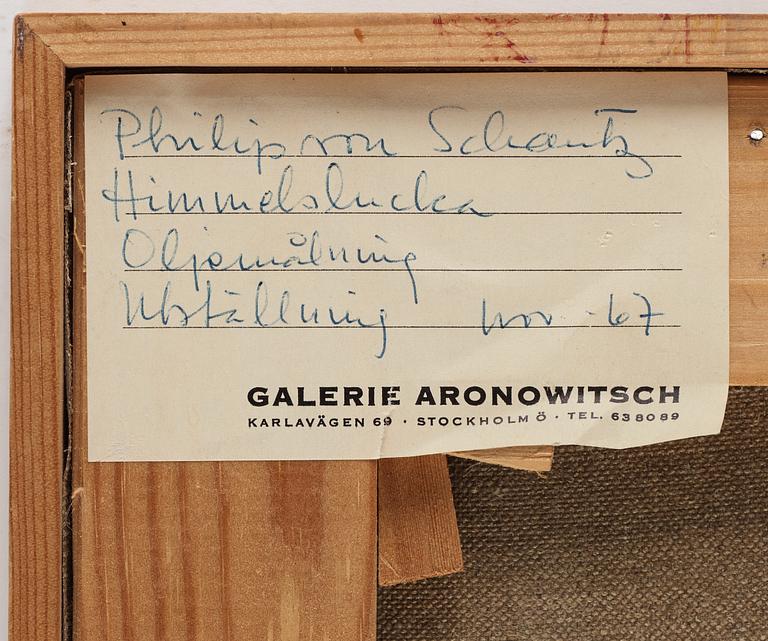 Philip von Schantz
Himmelslucka
Oljemålning
Utställning nov -67
GALERIE ARONOWITSCH
KARLAVÄGEN 69 · STOCKHOLM Ö · TEL. 638089